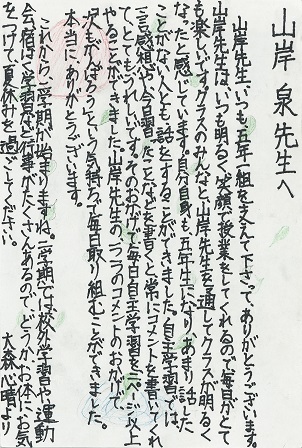 山岸 泉先生へ
山岸先生いつも五年一組を支えて下さってありがとうございます。
山岸先生はいつも明るく笑顔で授業をしてくれるので毎日がとて
も楽しいです。クラスのみんなと山岸先生を通してクラスが明るく
なったと感じています。自分自身も、五年生になり、あまり話した
ことがない人とも話をすることができました。自主学習では、
一言感想や今日学習したことなどを書くと常にコメントを書いてくれ
て、とてもうれしいです。そのおかげで毎日自主学習を二ページ以上
やることができました。山岸先生の一つ一つのコメントのおかげで、
次もがんばろうという気持ちで毎日取り組むことができました。
本当にありがとうございます。
これから二学期が始まりますね。二学期では校外学習や運動
会、宿はく学習など行事がたくさんあるので、どうかお体にお気
をつけて夏休みを過ごしてください。
大森心晴より